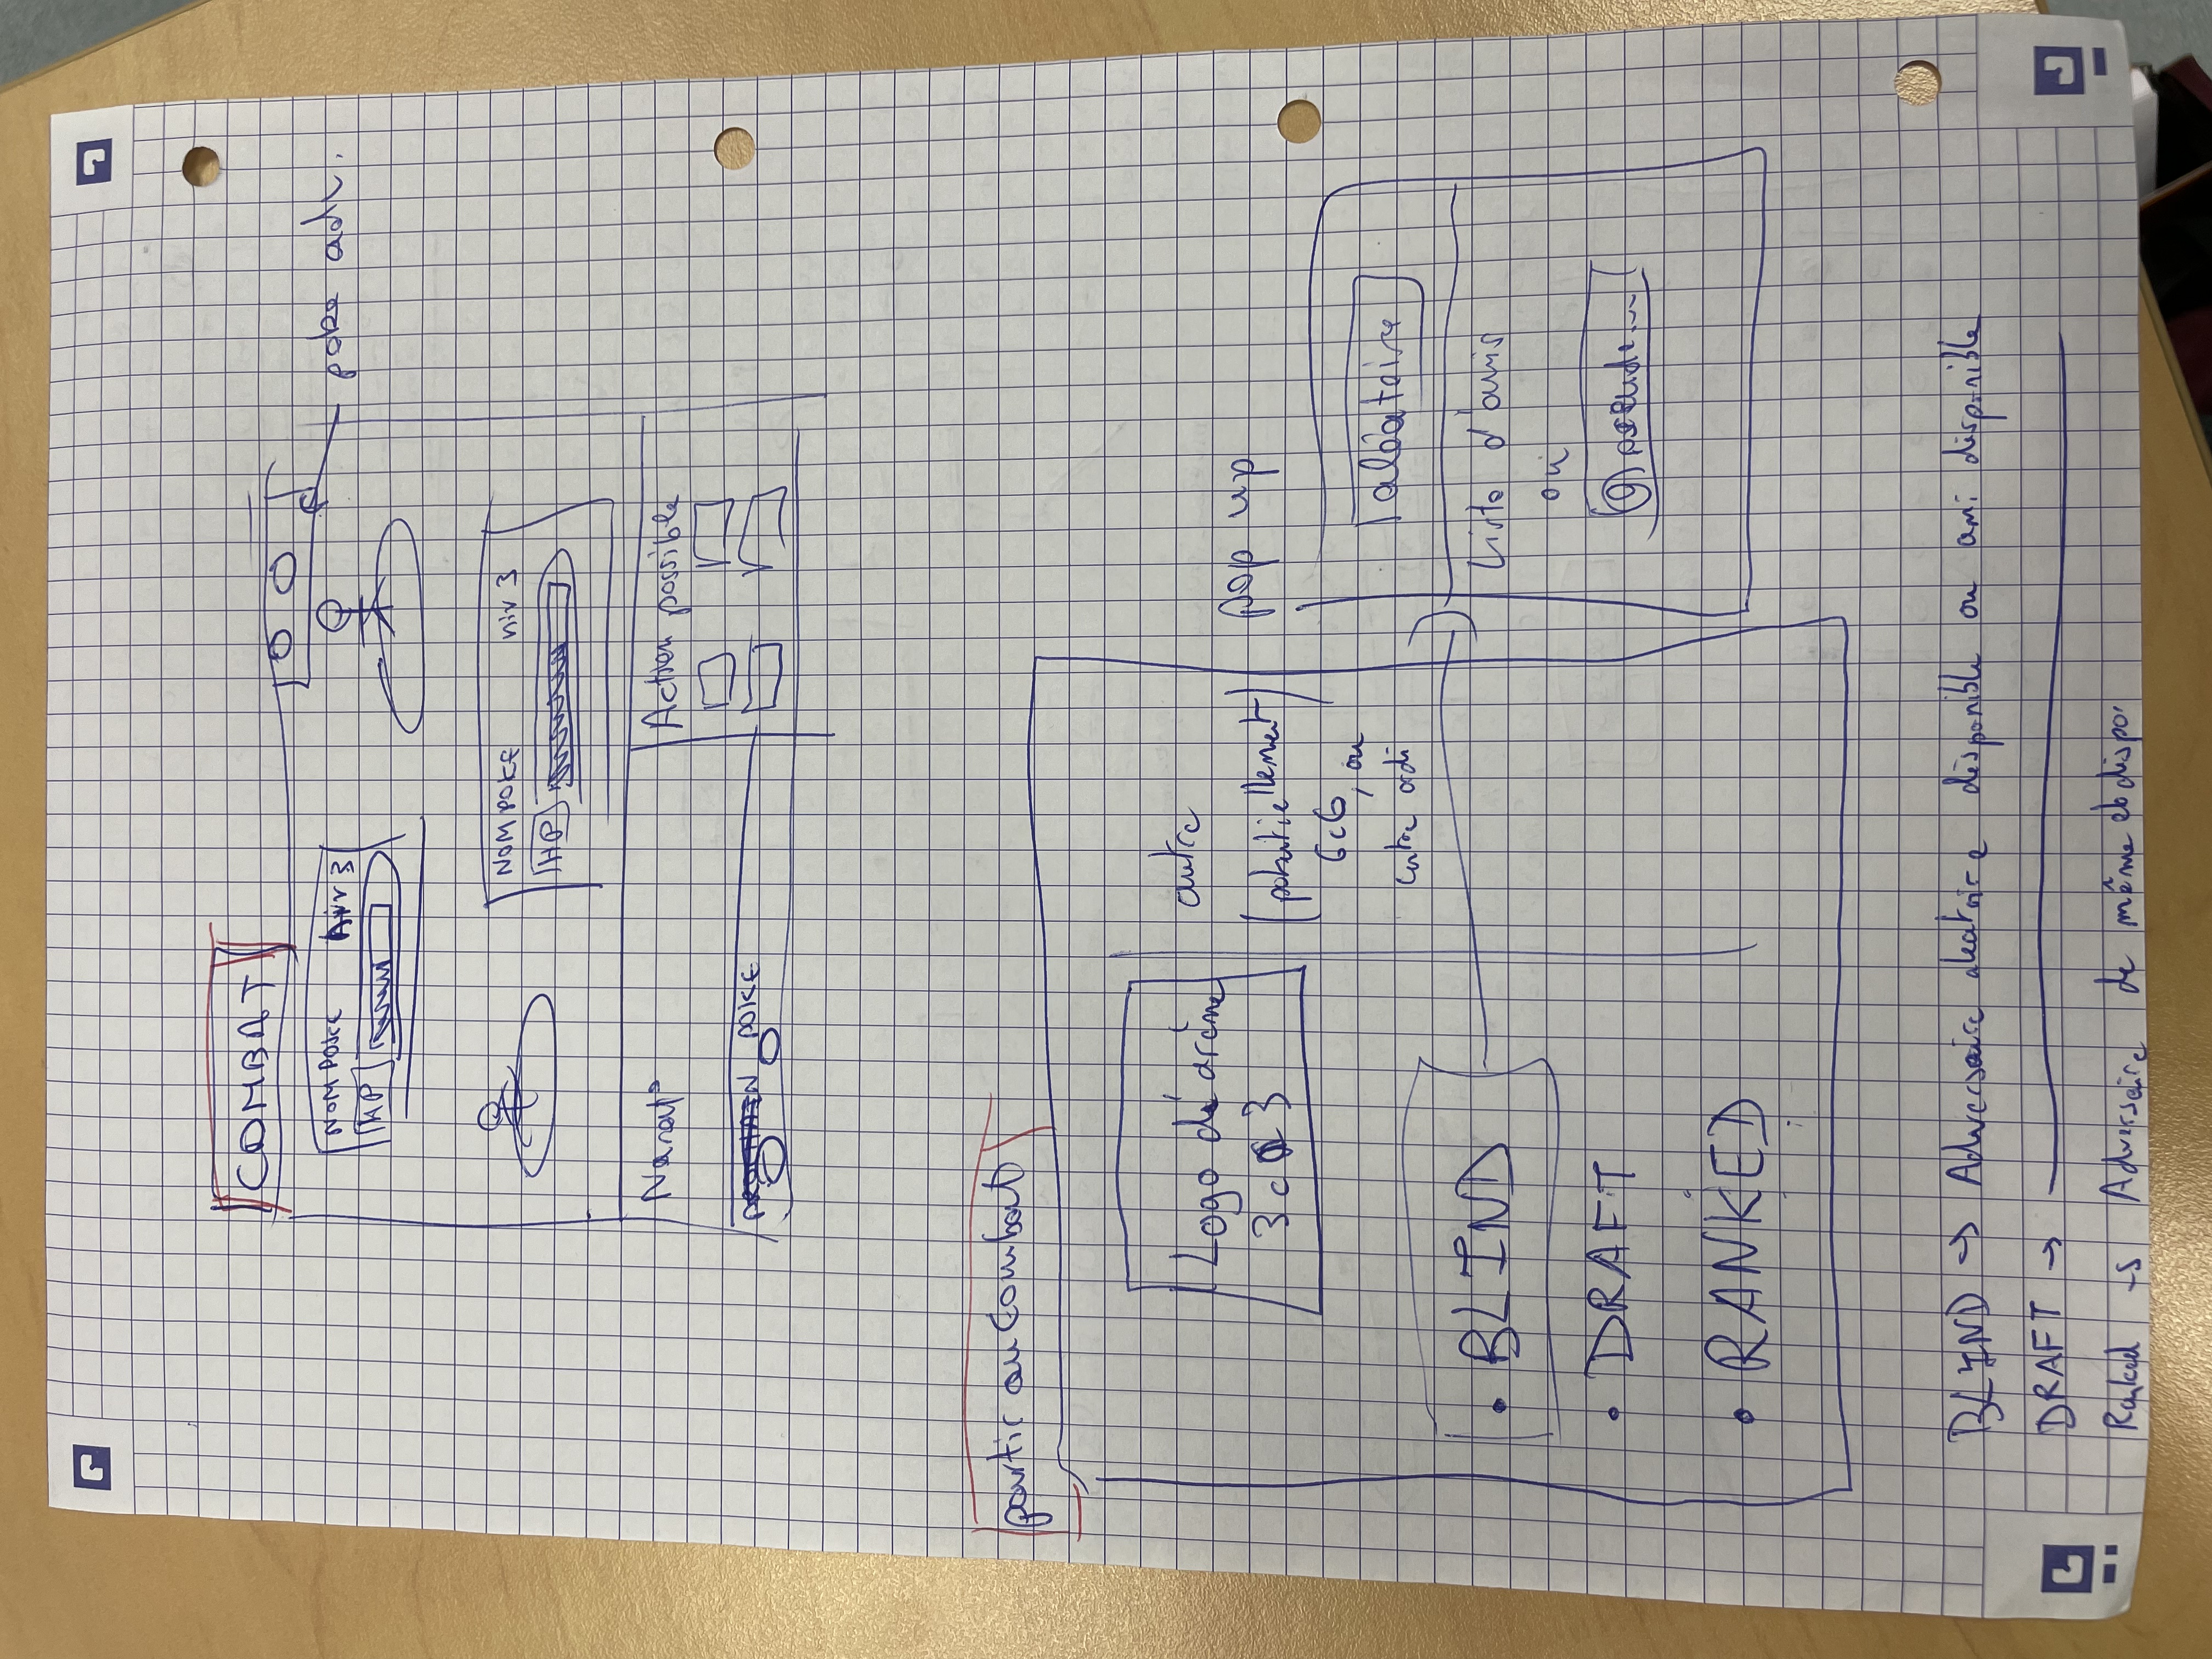 COMBAT
NOM POKE niv 3
HP
poke adv.
NOM POKE niv 3
HP
Narat°
Action possible
POKE
partir au combat
Logo d'arène
3 c 3
autre
(potentiellement)
6c6, ou
contre ordi
pop up
aléatoire
Liste d'amis
ou
pseudo...
• BLIND
• DRAFT
• RANKED
BLIND → Adversaire aleatoire disponible ou ami disponible
DRAFT →
Ranked → Adversaire de même eb dispo